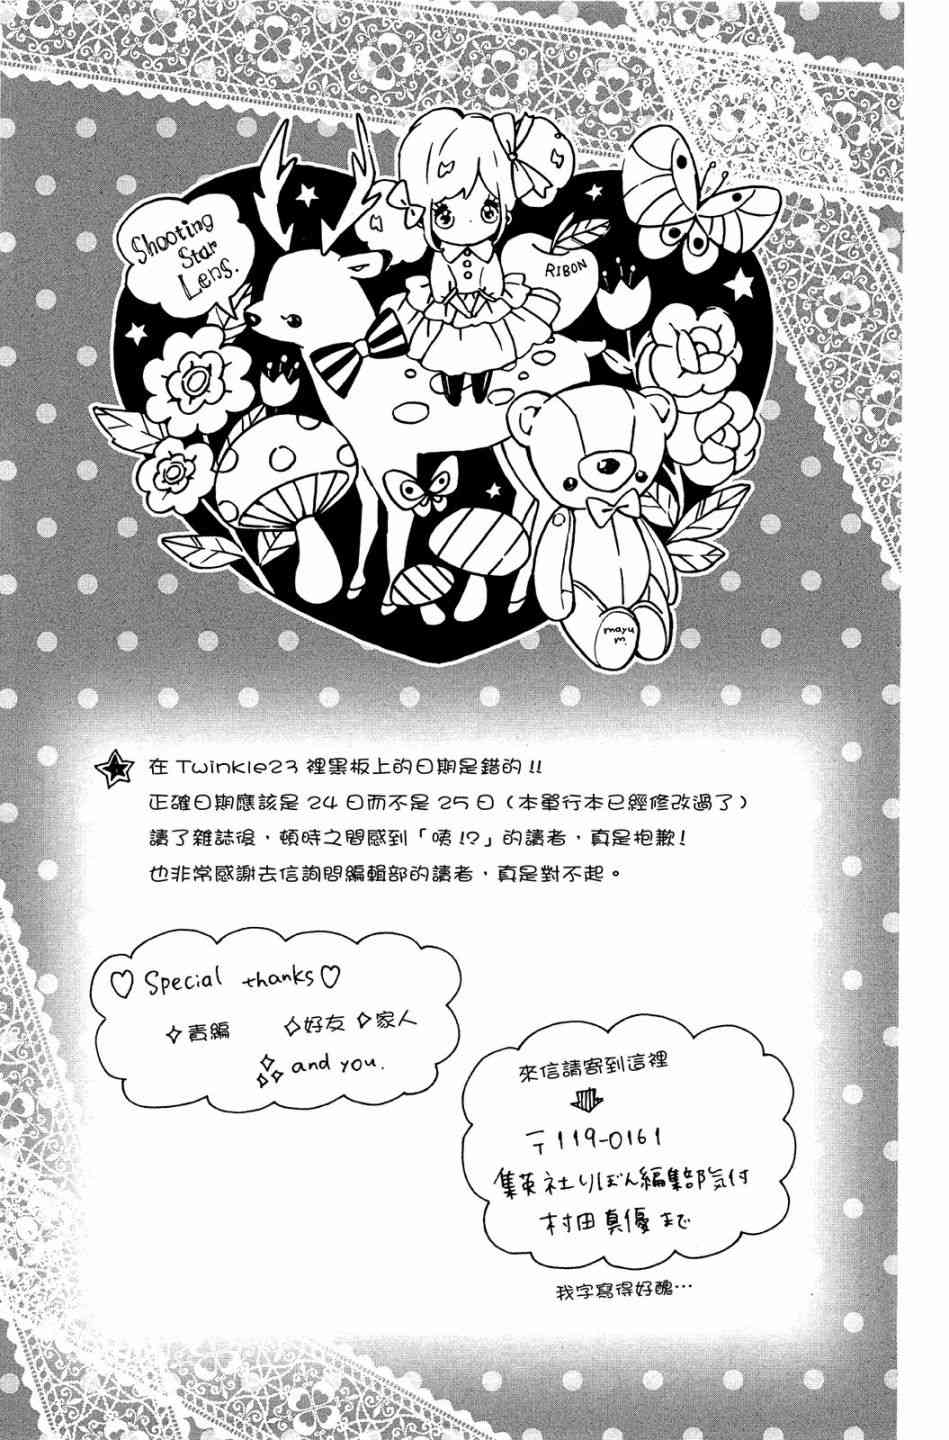 Shooting
Star
Lens.
RIBON
mayu
m.
在Twinkle23裡黑板上的日期是錯的!!
正確日期應該是24日而不是25日（本單行本已經修改過了）
讀了雜誌後，頓時之間感到「咦!?」的讀者，真是抱歉!
也非常感謝去信詢問編輯部的讀者，真是對不起。
♡Special thanks♡
✧責編 ✧好友 ✧家人
and you.
來信請寄到這裡
〒119-0161
集英社りぼん編集部気付
村田真優まで
我字寫得好醜…